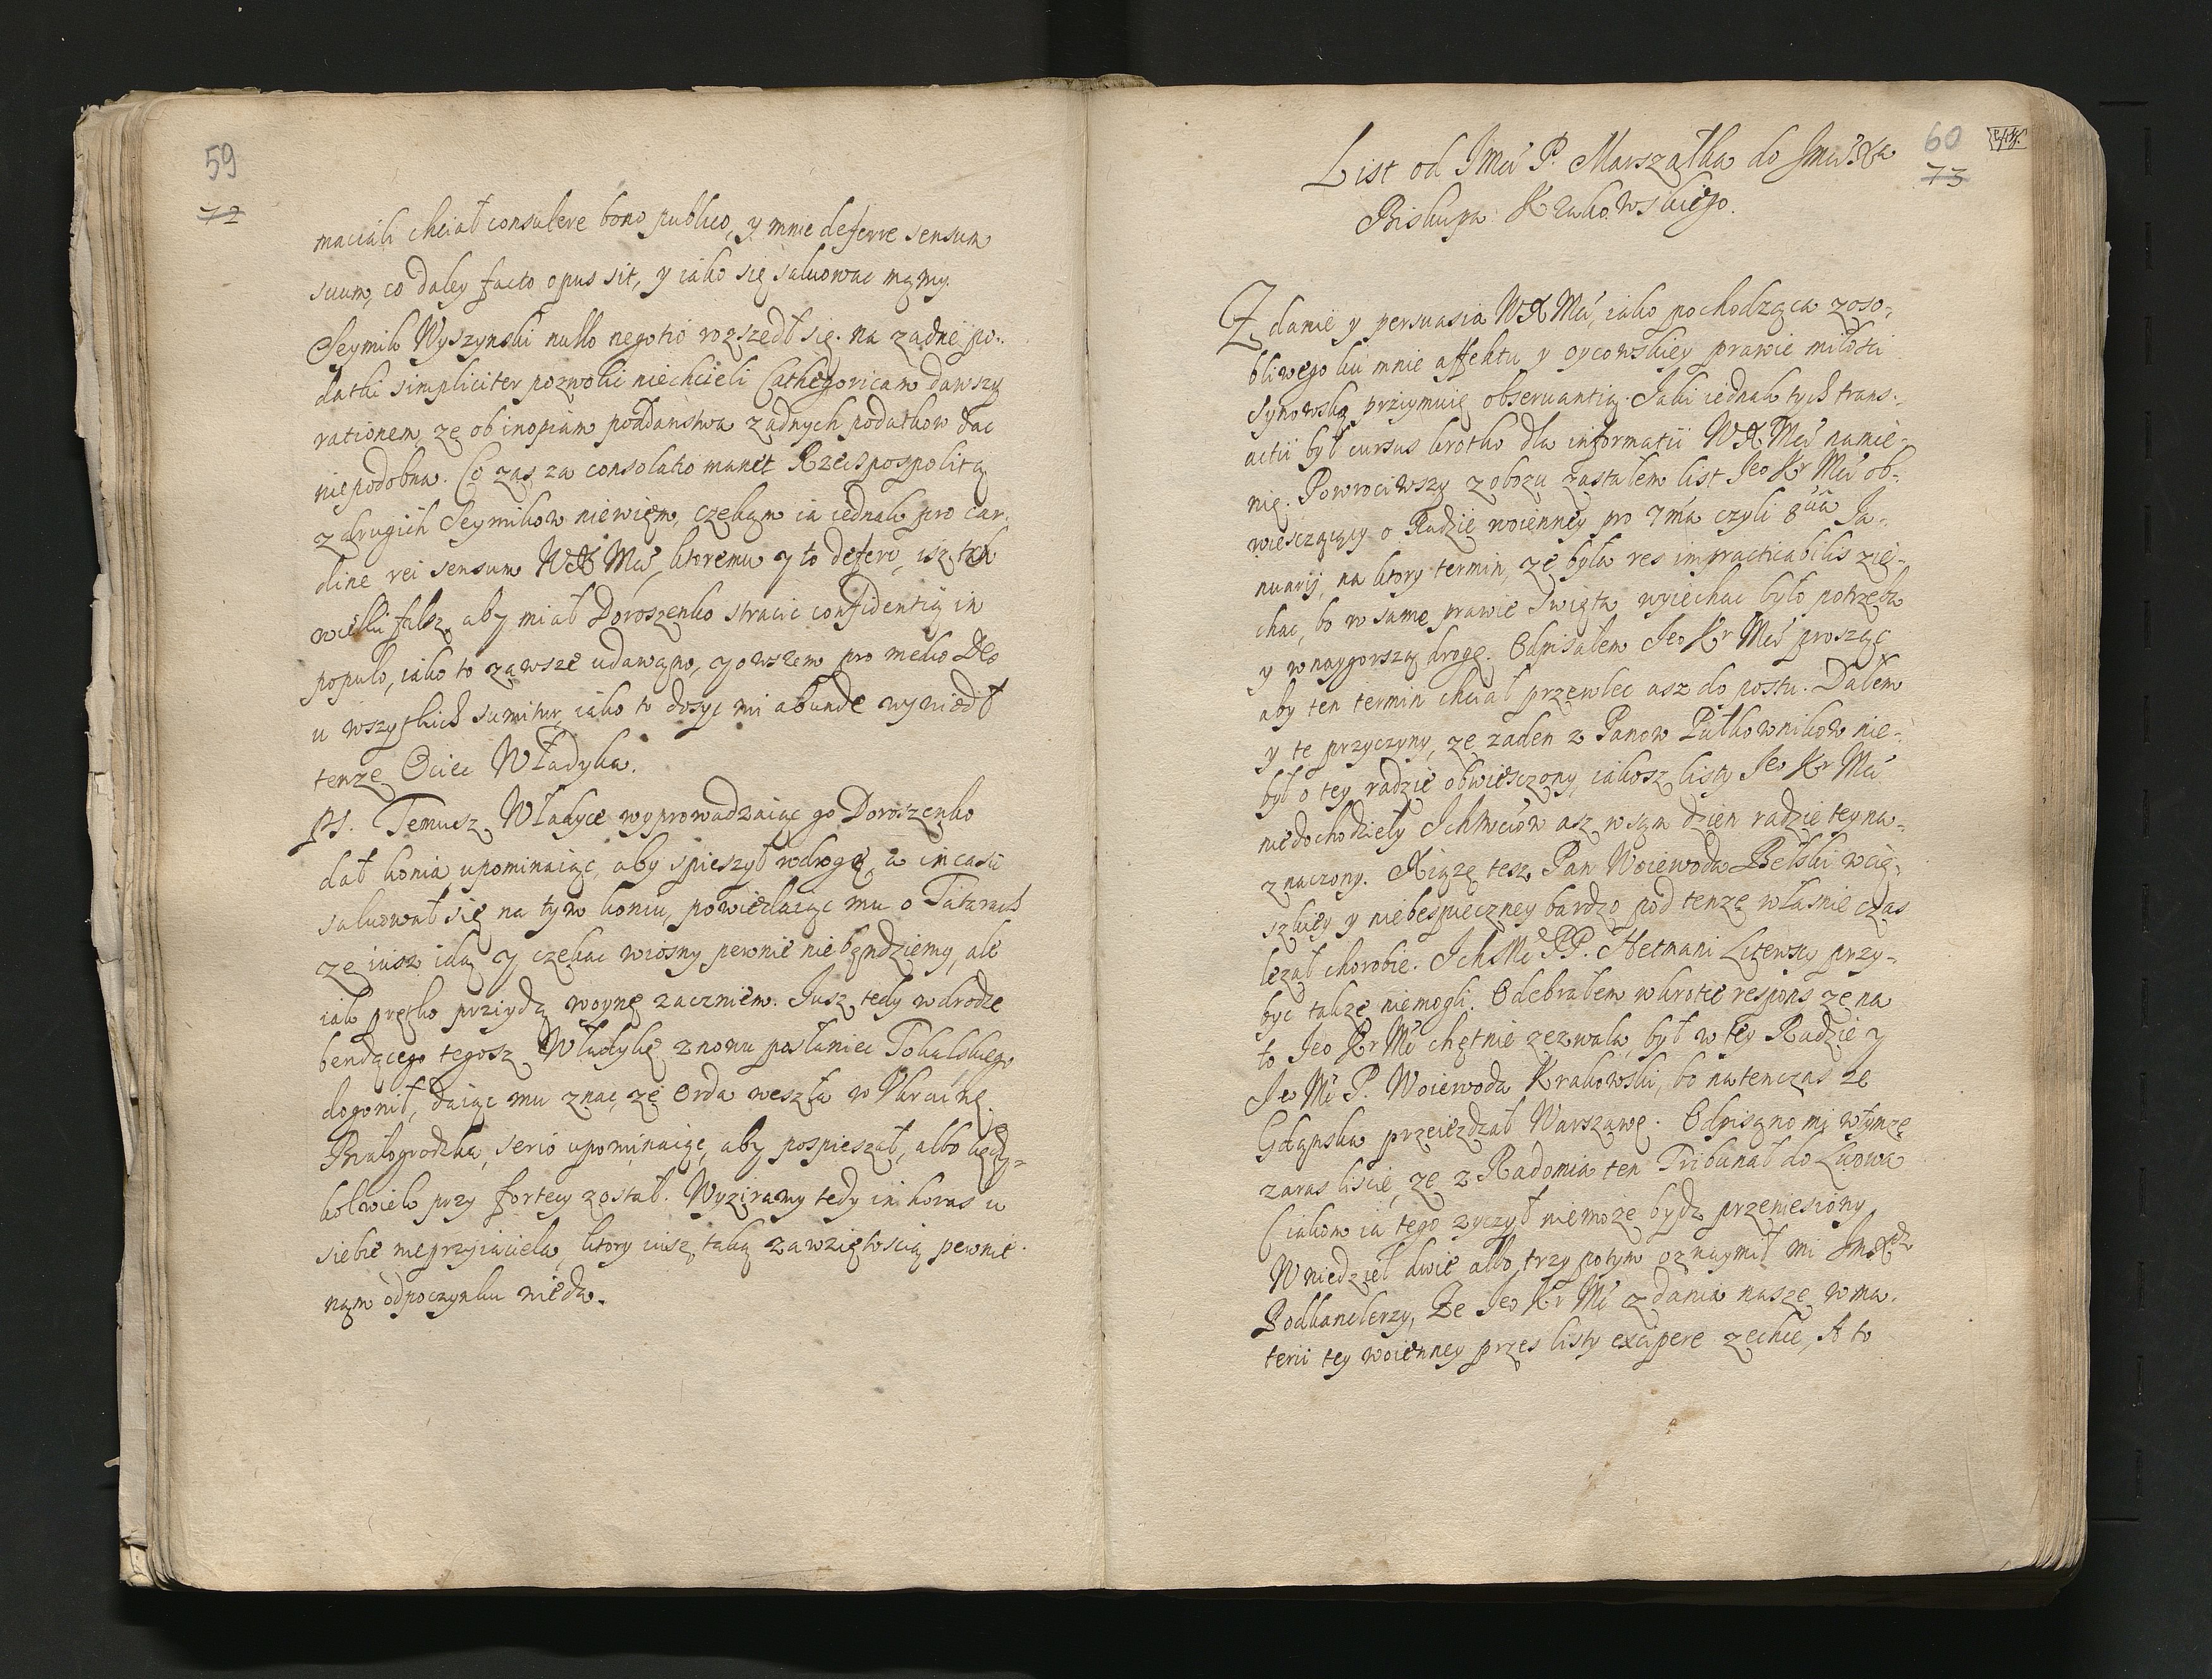 59
72
maciali chciał consulere bono publico, y mnie deferre sensum
suum, co daley facto opus sit, y iako się salwowac mąmy.
Seymik Wyszynski nullo negotio rozszedł się. na zadne po-
datki simpliciter pozwolic niechcieli Cathegoricam dawszy
rationem, ze ob inopiam poddanstwa zadnych podatkow dac
niepodobna. Co zas za consolatio manet Rzecspospolitą
z drugich Seymikow niewięm, czekąm ia iednak pro car-
dine rei sensum WX Mći, ktoremu y to defero, isz tak
wielki falsz, aby miał Doroszenko stracic confidentią in
populo, iako to ząwsze udawąno, y owszem pro medio Deo
u wszytkich sumitur, iako to dosyc mi abunde wywiodł
tenze Ociec Władyka.
Ps. Temusz Władyce wyprowadzaiąc go Doroszęnko
dał konia, upominaiąc, aby spieszył w drogę, a in casu
salwował się na tym koniu, powiedaiąc mu o Tatarach
ze iusz idą y czekac wiosny pewnie nie będziemy, ale
iak pręko przyydą woynę zaczniem. Jusz tedy w drodze
bendącego tegosz Władykę znowu posłaniec Tokalskiego
dogonił, daiąc mu znac, ze Orda weszła w Ukrainę
Białogrodzka, serio upominaiąc, aby pospieszał, albo kędy-
kolwiek przy fortecy został. Wyziramy tedy in horas u
siebie nieprzyiaciela, ktory iusz taką zawziętoscią pewnie
nąm odpoczynku nieda.
60
73
List od JMći P. Marszałka do Jmći Xa
Biskupa Krakowskiego.
Zdanie y persuasia WX Mći, iako pochodząca z oso-
bliwego ku mnie affektu y oycowskiey prawie miłosci
Synowską przyimuię obserwantią. Jaki iednak tych trans-
actii był cursus krotko dla informatii WX Mći namie-
nię. Powrociwszy z obozu zastałem list Jeo Kr Mći ob-
wiesczaiący o Radzie woienney pro 7ma czyli 8va Ja-
nuarij, na ktory termin, ze była res impracticabilis zie-
chac, bo w same prawie Swięta wyiechac było potrzeba
y w naygorszą drogę. Odpisałem Jeo Kr Mći prosząc
aby ten termin chciał przewlec asz do postu. Dałem
y te przyczyny, ze zaden z Panow Pułkownikow nie-
był o tey radzie obwiesczony, iakosz listy Jeo Kr Mći
niedochodzieły Ichmciow asz w sąm dzien radzie tey na-
znaczony. Xiąze tesz Pan Woiewoda Bełski w cię-
szkiey y niebespieczney bardzo pod tenze własnie czas
lezał chorobie. Ich Mć PP. Hetmani Litewscy przy-
byc takze niemogli. Odebrałem w krotce respons ze na
to Jeo Kr Mć chętnie zezwala, był w tey Radzie y
Jeo Mć P. Woiewoda Krakowski, bo natenczas ze
Gdąnska przeiezdzał Warszawę. Odpisąno mi w tymze
zaras liscie, ze z Radomia ten Tribunał do Lwowa
(iakom ia tego zyczył niemoze bydz przeniesiony
W niedziel dwie albo trzy potym oznaymił mi JmXdz
Podkanclerzy, Ze Jeo Kr Mć zdania nasze w ma-
terii tey woienney przes listy excipere zechce, A to